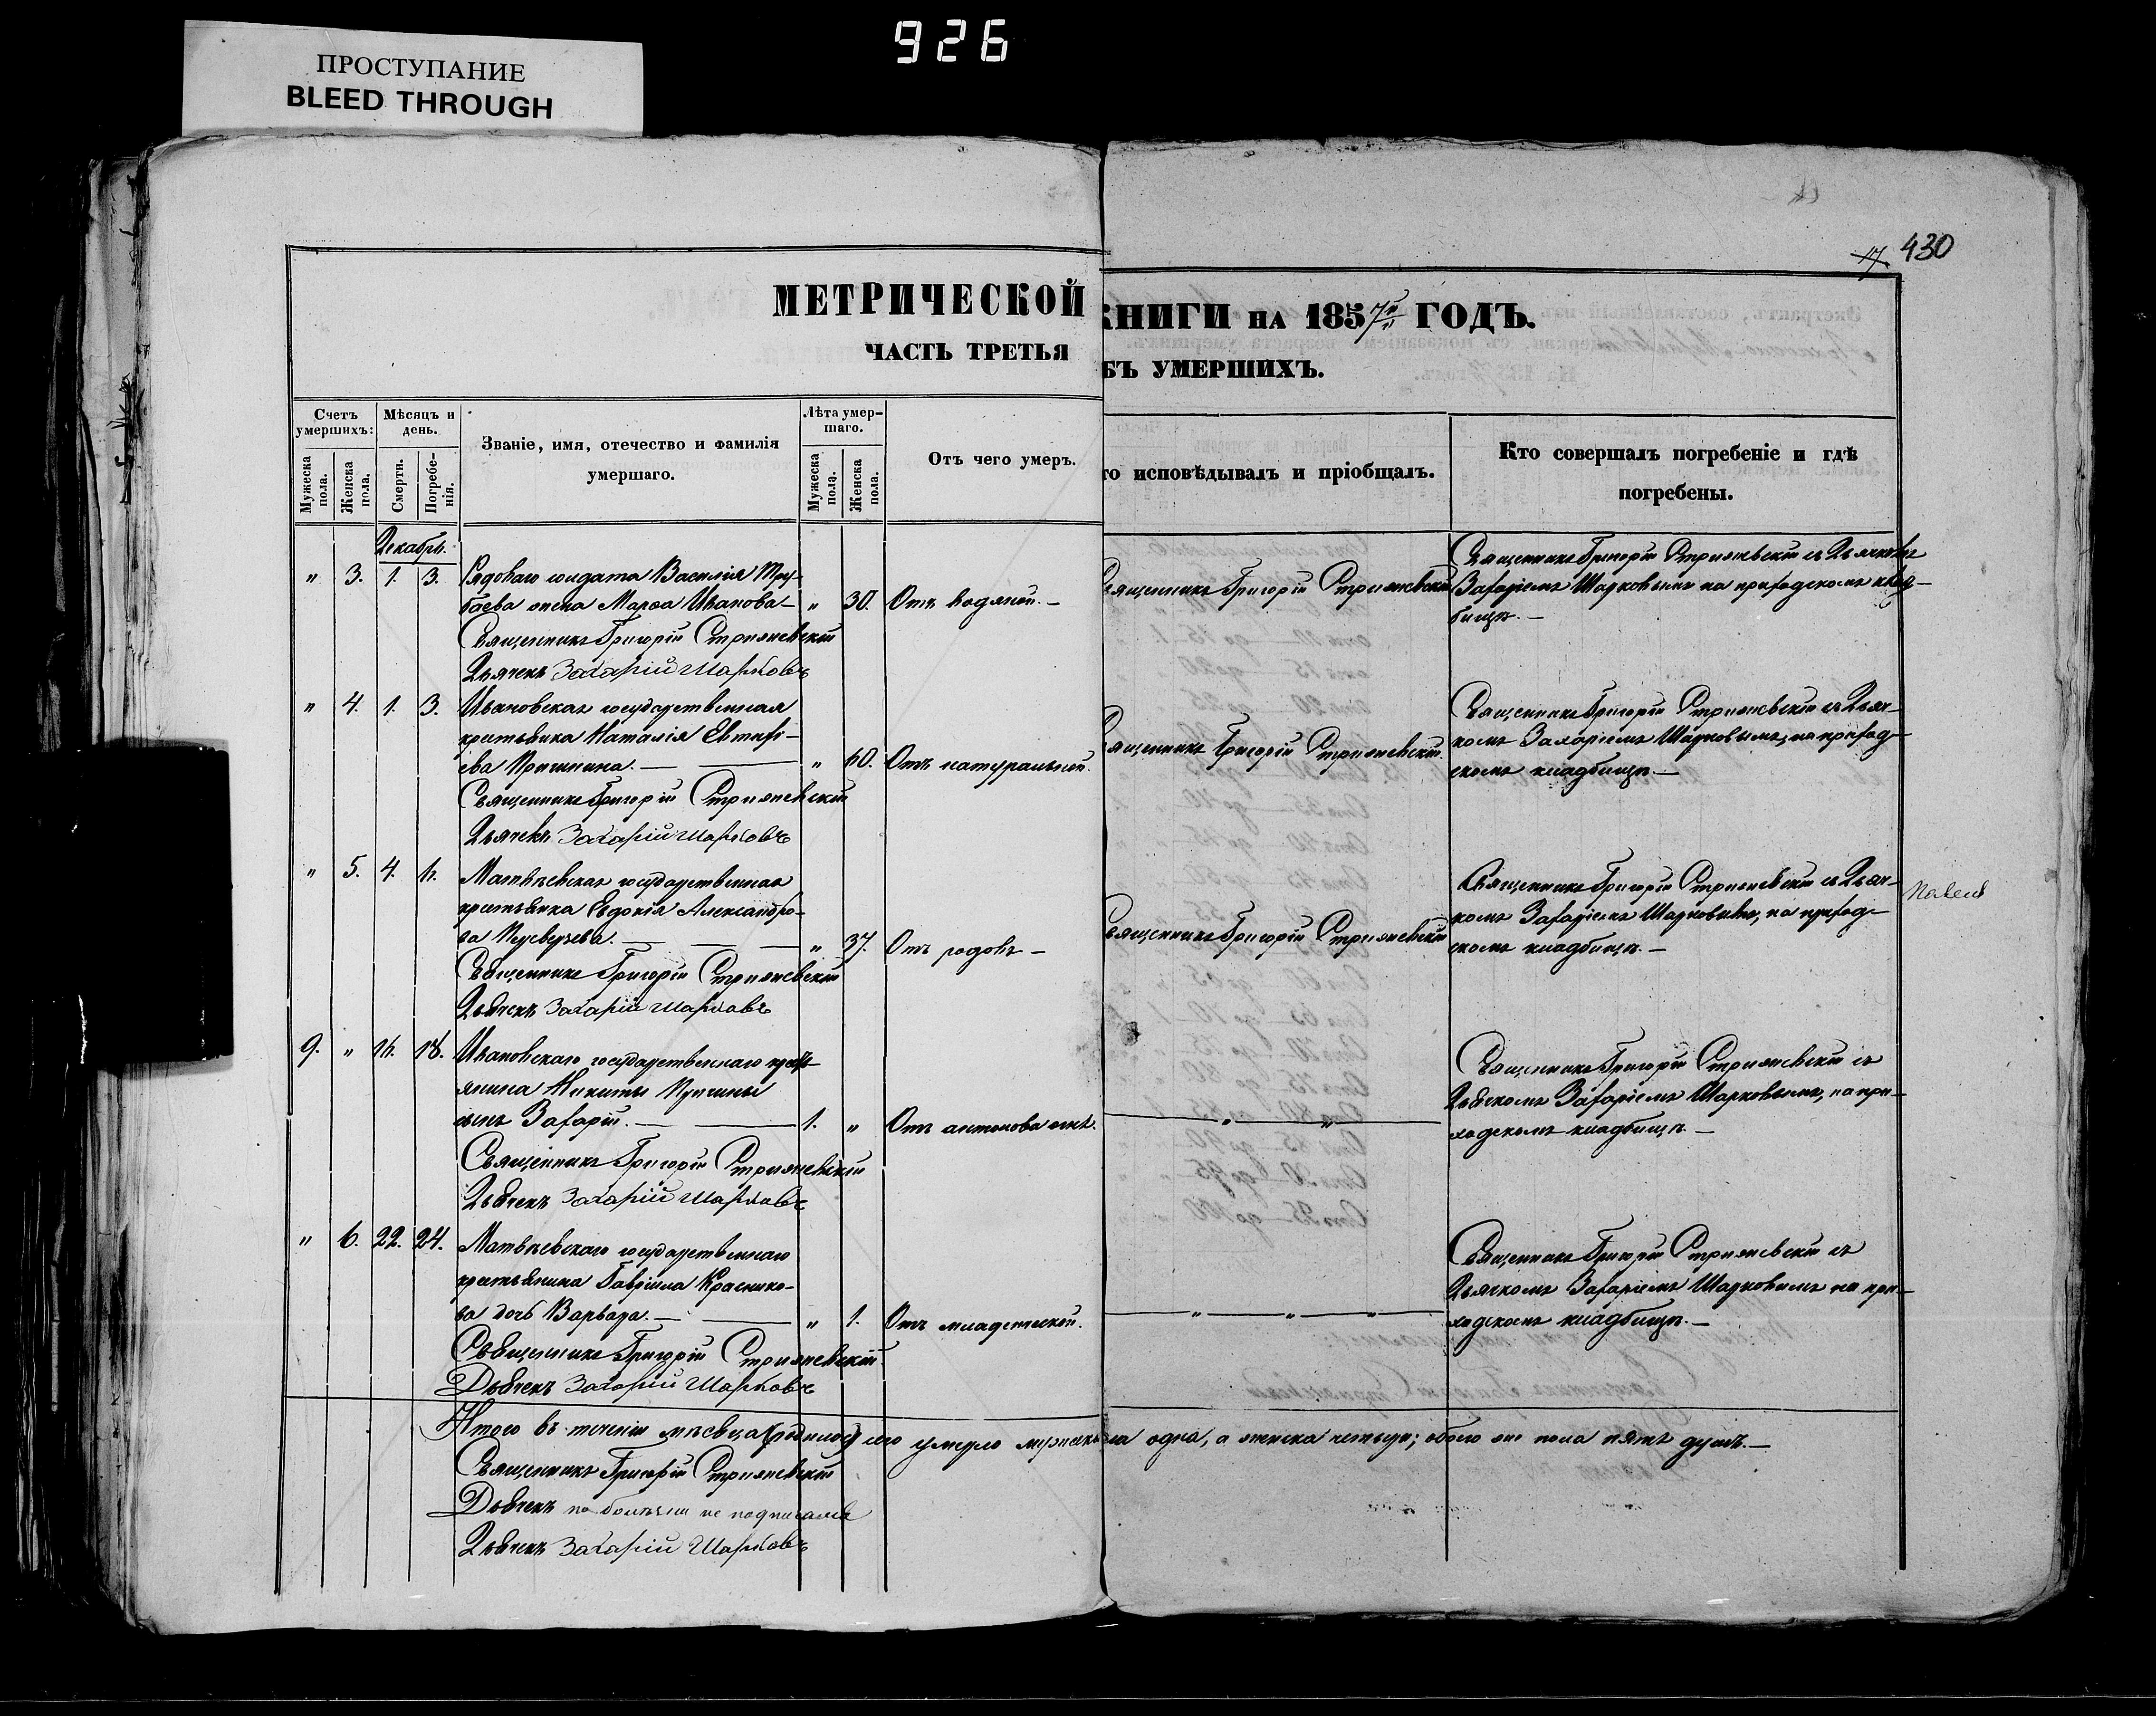 926
ПРОСТУПАНИЕ
BLEED THROUGH
430
17.
МЕТРИЧЕСКОЙ КНИГИ НА 1857й ГОДЪ.
ЧАСТЬ ТРЕТЬЯ
БЪ УМЕРШИХЪ.
Счетъ умершихъ:
Мужеска пола.
Женска пола.
Мѣсяцъ и день.
Смерти.
Погребенія.
Званіе, имя, отечество и фамилія
умершаго.
Лѣта умершаго.
Мужеска пола.
Женска пола.
Отъ чего умеръ.
то исповѣдывалъ и пріобщалъ.
Кто совершалъ погребеніе и гдѣ
погребены.
Декабрь.
" 3. 1. 3. Рядоваго солдата Василія
жена Марѳа Иванова — " 30. Отъ водяной. —
Священникъ Григорій Стрижевскій
Дьячекъ Захарій Шарковъ
Священникъ Григорій Стрижевскій
Священникъ Григорій Стрижевскій съ Дьячкомъ
Захаріемъ Шарковымъ на приходскомъ клад-
бищѣ. —
" 4. 1. 3. Ивановская государственная
крестьянка Наталія Евтихі-
ева — " 60. Отъ натуральной.
Священникъ Григорій Стрижевскій
Дьячекъ Захарій Шарковъ
Священникъ Григорій Стрижевскій.
Священникъ Григорій Стрижевскій съ Дьяч-
комъ Захаріемъ Шарковымъ, на приход-
скомъ кладбищѣ. —
" 5. 4. 6. Матвѣевская государственная
крестьянка Евдокія Александро-
ва — " 37. Отъ родовъ —
Священникъ Григорій Стрижевскій
Дьячекъ Захарій Шарковъ
Священникъ Григорій Стрижевскій
Священникъ Григорій Стрижевскій съ Дьяч-
комъ Захаріемъ Шарковымъ, на приход-
скомъ кладбищѣ. —
9. " 16. 18. Ивановскаго государственнаго кресть-
янина Никиты
сынъ Захарій. — 1. " Отъ антонова огня.
Священникъ Григорій Стрижевскій
Дьячекъ Захарій Шарковъ
" "
Священникъ Григорій Стрижевскій съ
Дьячкомъ Захаріемъ Шарковымъ, на при-
ходскомъ кладбищѣ. —
" 6. 22. 24. Матвѣевскаго государственнаго
крестьянина Гавріила Краснико-
ва дочь Варвара. — " 1. Отъ младенческой.
Священникъ Григорій Стрижевскій.
Дьячекъ Захарій Шарковъ
" " "
Священникъ Григорій Стрижевскій съ
Дьячкомъ Захаріемъ Шарковымъ на при-
ходскомъ кладбищѣ. —
Итого въ теченіи мѣсяца умерло мужеска пола одна, а женска четыре; обоего же пола пять душъ. —
Священникъ Григорій Стрижевскій
Дьячекъ по болѣзни не подписался
Дьячекъ Захарій Шарковъ